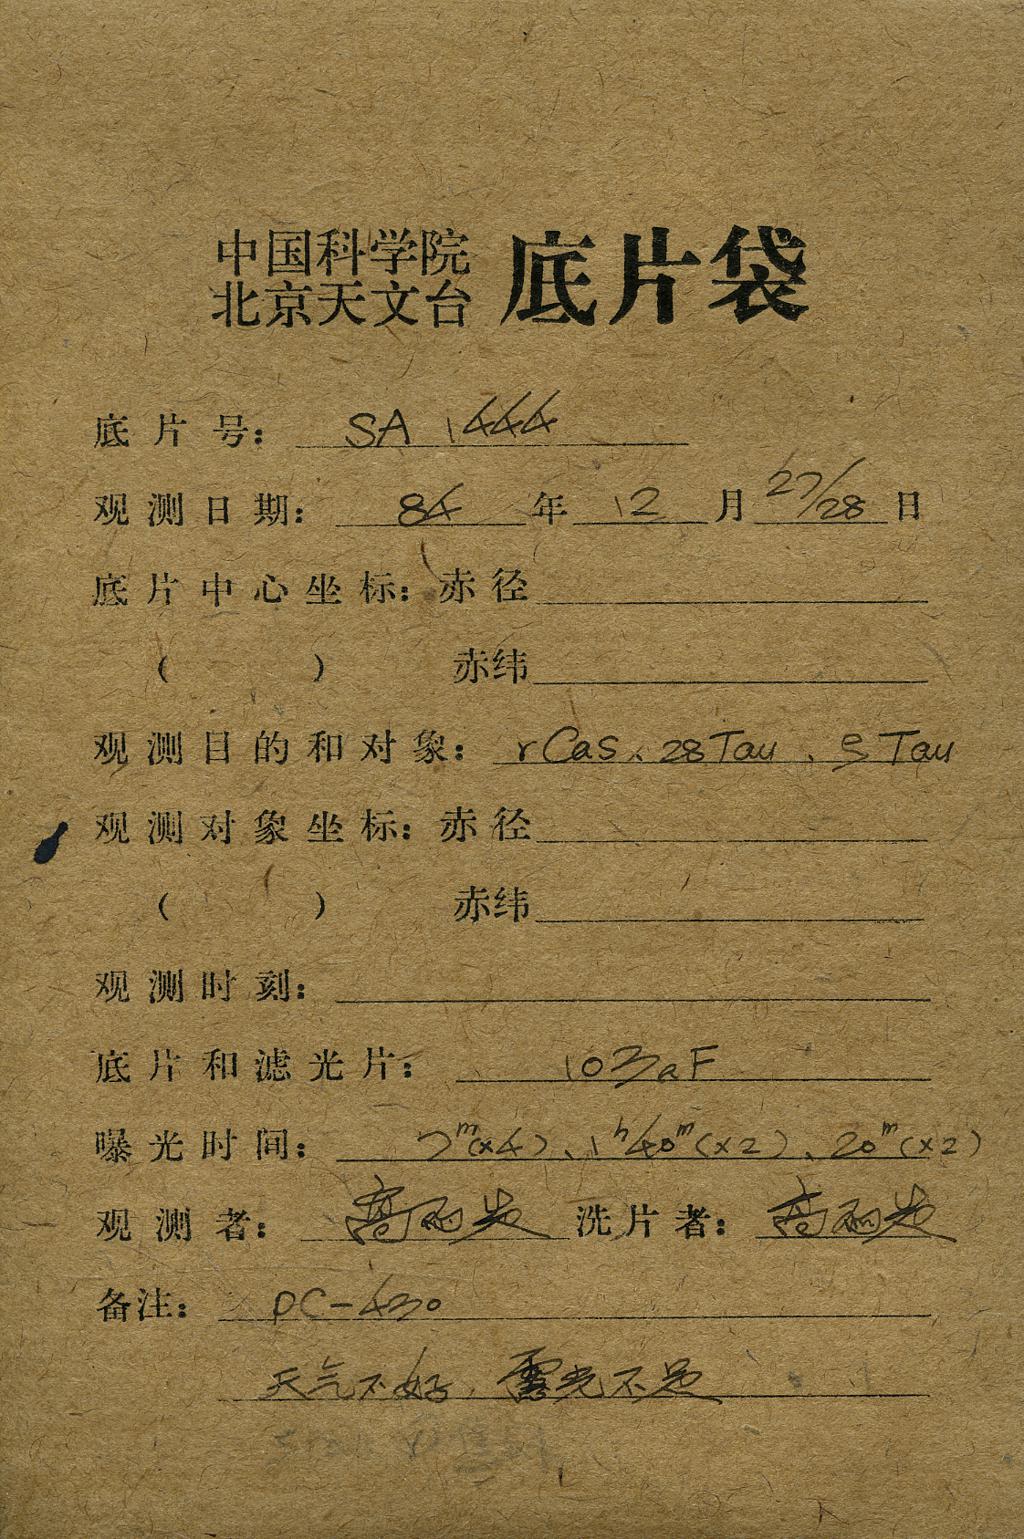 中国科学院
北京天文台 底片袋
底片号: SA 1444
观测日期: 84 年 12 月 27/28 日
底片中心坐标: 赤径
( ) 赤纬
观测目的和对象: rCas、28Tau、ζ Tau
观测对象坐标: 赤径
( ) 赤纬
观测时刻:
底片和滤光片: 103aF
曝光时间: 7ᵐ(×4)、1ʰ40ᵐ(×2)、20ᵐ(×2)
观测者: 洗片者:
备注: PC-430
天气不好, 露光不足